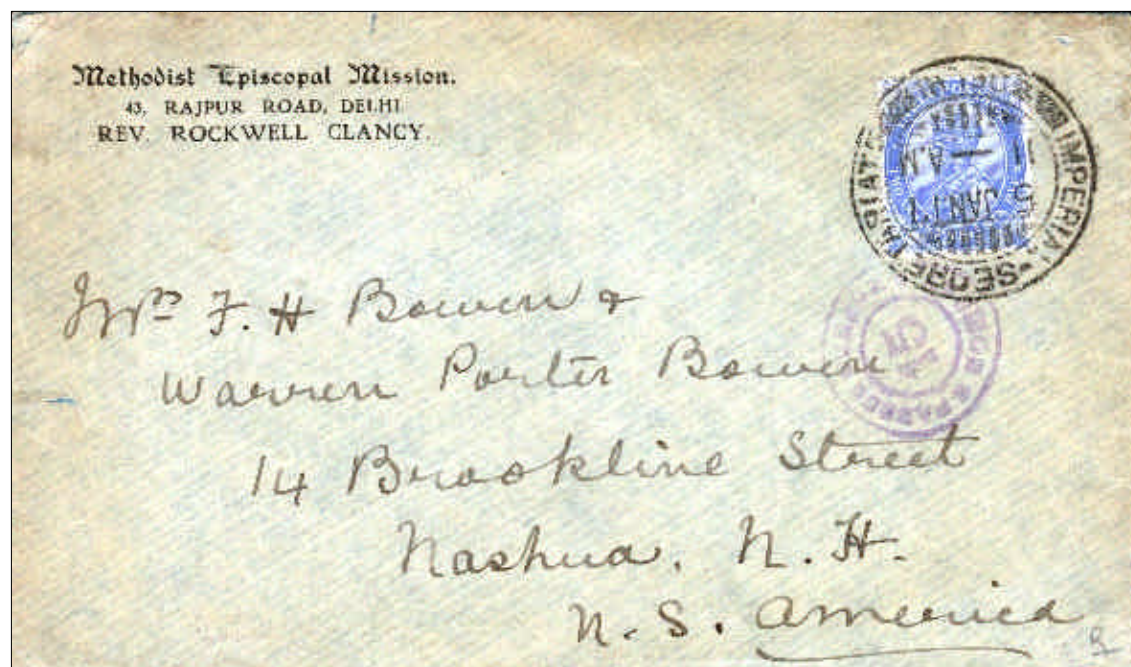 Methodist Episcopal Mission.
43, RAJPUR ROAD, DELHI
REV. ROCKWELL CLANCY.
IMPERIAL SECRETARIAT
A.M
5 JAN 17
Mrs F. H Bowen &
Warren Porter Bowen
14 Brookline Street
Nashua. N. H.
U. S. America